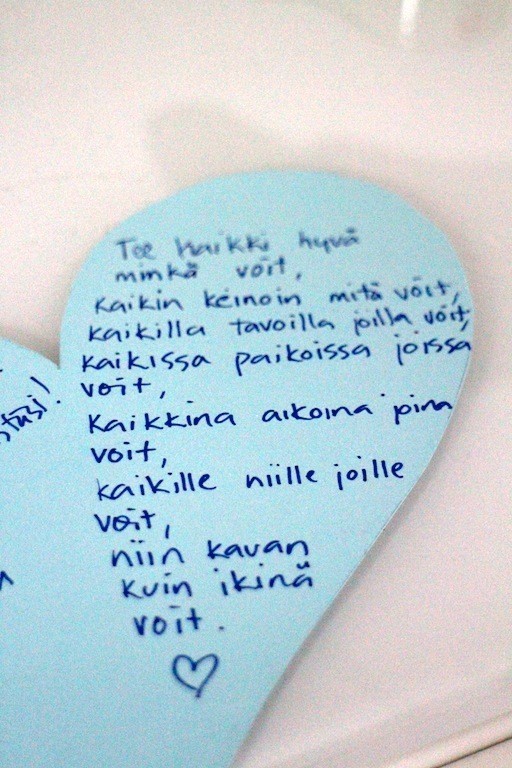 Tee kaikki hyvä
minkä voit,
kaikin keinoin mitä voit,
kaikilla tavoilla joilla voit,
kaikissa paikoissa joissa
voit,
kaikkina aikoina joina
voit,
kaikille niille joille
voit,
niin kavan
kuin ikinä
voit.